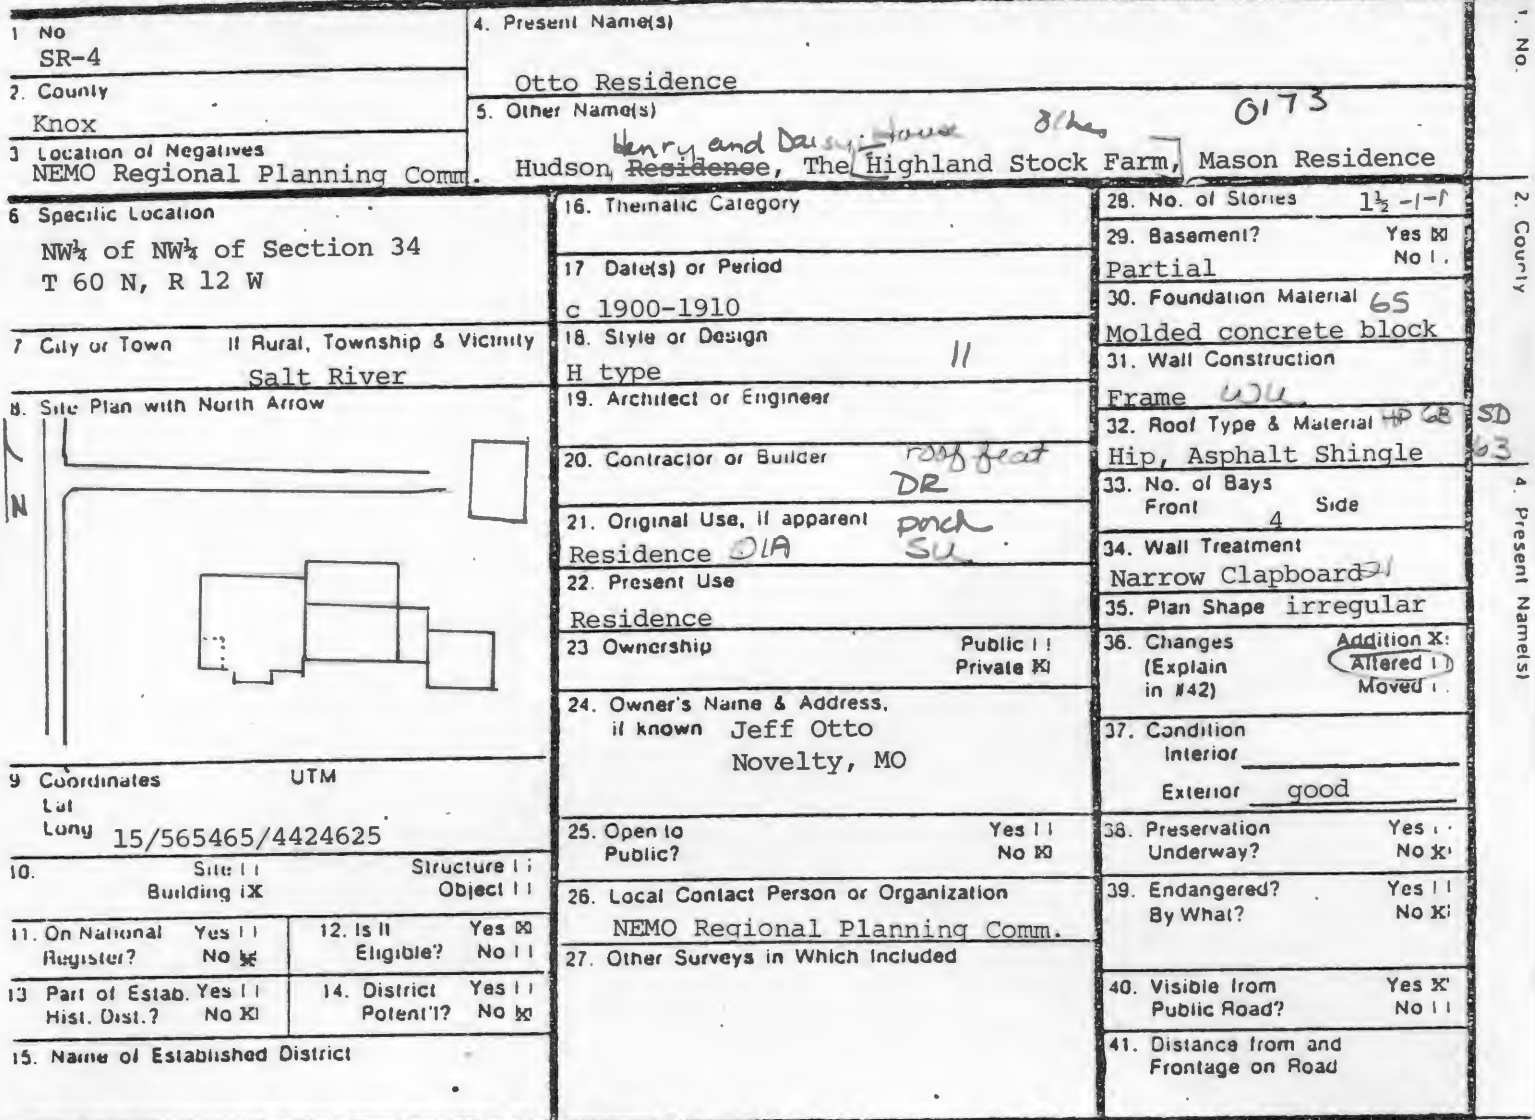 1 No
SR-4
2. County
Knox
3 Location of Negatives
NEMO Regional Planning Comm.
4. Present Name(s)
Otto Residence
5. Other Name(s)
0173
Henry and Daisy House
Hudson, Residence, The Highland Stock Farm, Mason Residence
6 Specific Location
NW¼ of NW¼ of Section 34
T 60 N, R 12 W
7 City or Town If Rural, Township & Vicinity
Salt River
8. Site Plan with North Arrow
N
9 Coordinates UTM
Lat
Long 15/565465/4424625
10. Site Structure
Building X Object
11. On National Register? Yes No X
12. Is It Eligible? Yes X No
13 Part of Estab. Hist. Dist.? Yes No X
14. District Potent'l? Yes No X
15. Name of Established District
16. Thematic Category
17 Date(s) or Period
c 1900-1910
18. Style or Design
H type 11
19. Architect or Engineer
20. Contractor or Builder
roof feat
DR
21. Original Use, if apparent
Residence 01A
porch
SU
22. Present Use
Residence
23 Ownership Public
Private X
24. Owner's Name & Address,
if known Jeff Otto
Novelty, MO
25. Open to Public? Yes
No X
26. Local Contact Person or Organization
NEMO Regional Planning Comm.
27. Other Surveys in Which Included
28. No. of Stories 1½-1-1
29. Basement? Yes X
Partial No
30. Foundation Material 65
Molded concrete block
31. Wall Construction
Frame WU
32. Roof Type & Material HP 6B
Hip, Asphalt Shingle
SD
63
33. No. of Bays
Front 4 Side
34. Wall Treatment
Narrow Clapboard 21
35. Plan Shape irregular
36. Changes Addition X
(Explain Altered
in #42) Moved
37. Condition
Interior
Exterior good
38. Preservation Yes
Underway? No X
39. Endangered? Yes
By What? No X
40. Visible from Yes X
Public Road? No
41. Distance from and
Frontage on Road
1. No.
2. County
4. Present Name(s)